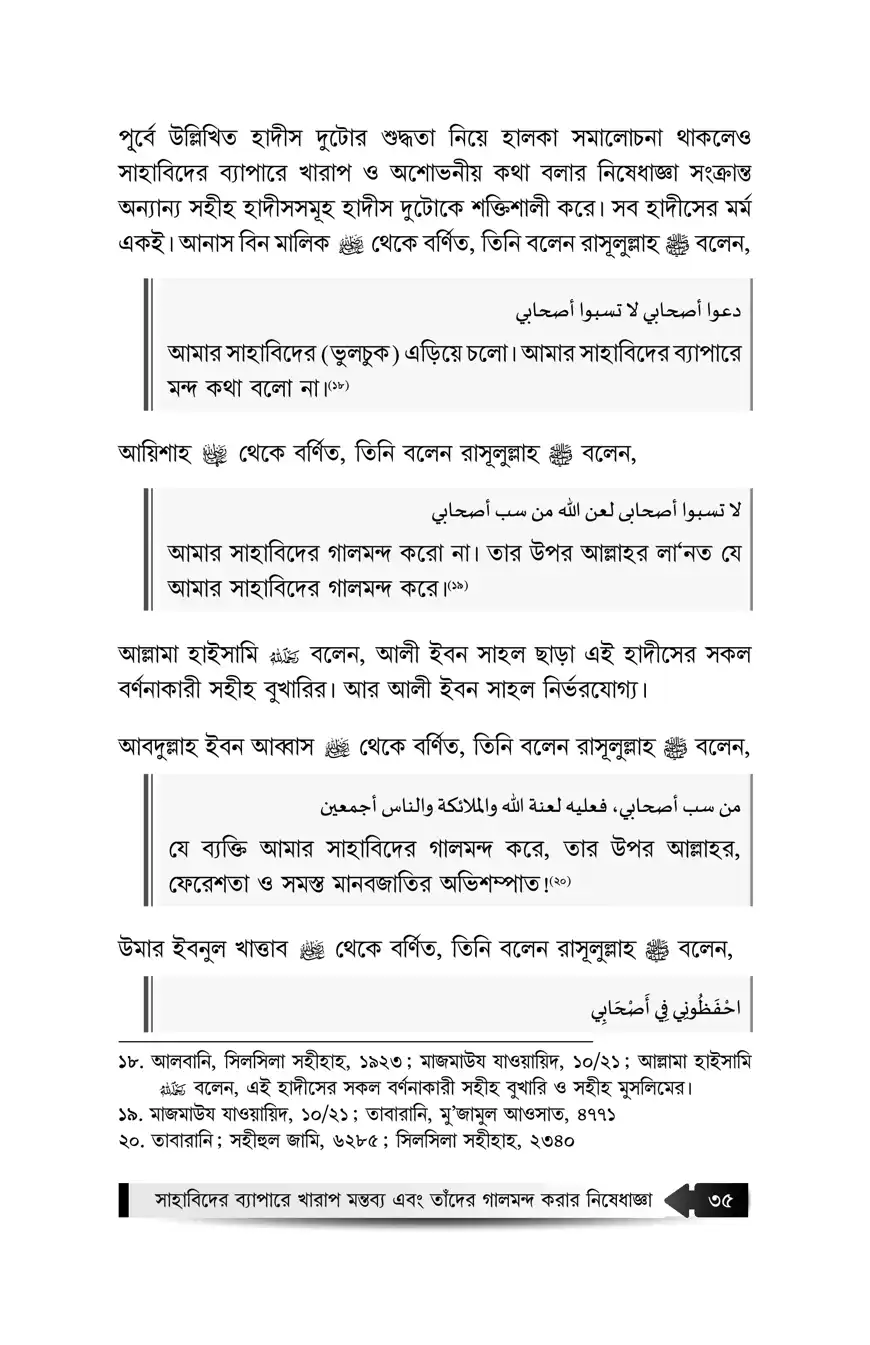 পূর্বে উল্লিখিত হাদীস দুটোর শুদ্ধতা নিয়ে হালকা সমালোচনা থাকলেও
সাহাবিদের ব্যাপারে খারাপ ও অশোভনীয় কথা বলার নিষেধাজ্ঞা সংক্রান্ত
অন্যান্য সহীহ হাদীসসমূহ হাদীস দুটোকে শক্তিশালী করে। সব হাদীসের মর্ম
একই। আনাস বিন মালিক ﵁ থেকে বর্ণিত, তিনি বলেন রাসূলুল্লাহ ﷺ বলেন,
دعوا أصحابي لا تسبوا أصحابي
আমার সাহাবিদের (ভুলচুক) এড়িয়ে চলো। আমার সাহাবিদের ব্যাপারে
মন্দ কথা বলো না।(১৮)
আয়িশাহ ﵂ থেকে বর্ণিত, তিনি বলেন রাসূলুল্লাহ ﷺ বলেন,
لا تسبوا أصحابى لعن الله من سب أصحابي
আমার সাহাবিদের গালমন্দ করো না। তার উপর আল্লাহর লা‘নত যে
আমার সাহাবিদের গালমন্দ করে।(১৯)
আল্লামা হাইসামি ﵀ বলেন, আলী ইবন সাহল ছাড়া এই হাদীসের সকল
বর্ণনাকারী সহীহ বুখারির। আর আলী ইবন সাহল নির্ভরযোগ্য।
আবদুল্লাহ ইবন আব্বাস ﵁ থেকে বর্ণিত, তিনি বলেন রাসূলুল্লাহ ﷺ বলেন,
من سب أصحابي، فعليه لعنة الله والملائكة والناس أجمعين
যে ব্যক্তি আমার সাহাবিদের গালমন্দ করে, তার উপর আল্লাহর,
ফেরেশতা ও সমস্ত মানবজাতির অভিশম্পাত!(২০)
উমার ইবনুল খাত্তাব ﵁ থেকে বর্ণিত, তিনি বলেন রাসূলুল্লাহ ﷺ বলেন,
احْفَظُونِي فِي أَصْحَابِي
১৮. আলবানি, সিলসিলা সহীহাহ, ১৯২৩; মাজমাউয যাওয়ায়িদ, ১০/২১; আল্লামা হাইসামি
﵀ বলেন, এই হাদীসের সকল বর্ণনাকারী সহীহ বুখারি ও সহীহ মুসলিমের।
১৯. মাজমাউয যাওয়ায়িদ, ১০/২১; তাবারানি, মু’জামুল আওসাত, ৪৭৭১
২০. তাবারানি; সহীহুল জামি, ৬২৮৫; সিলসিলা সহীহাহ, ২৩৪০
সাহাবিদের ব্যাপারে খারাপ মন্তব্য এবং তাঁদের গালমন্দ করার নিষেধাজ্ঞা ৩৫